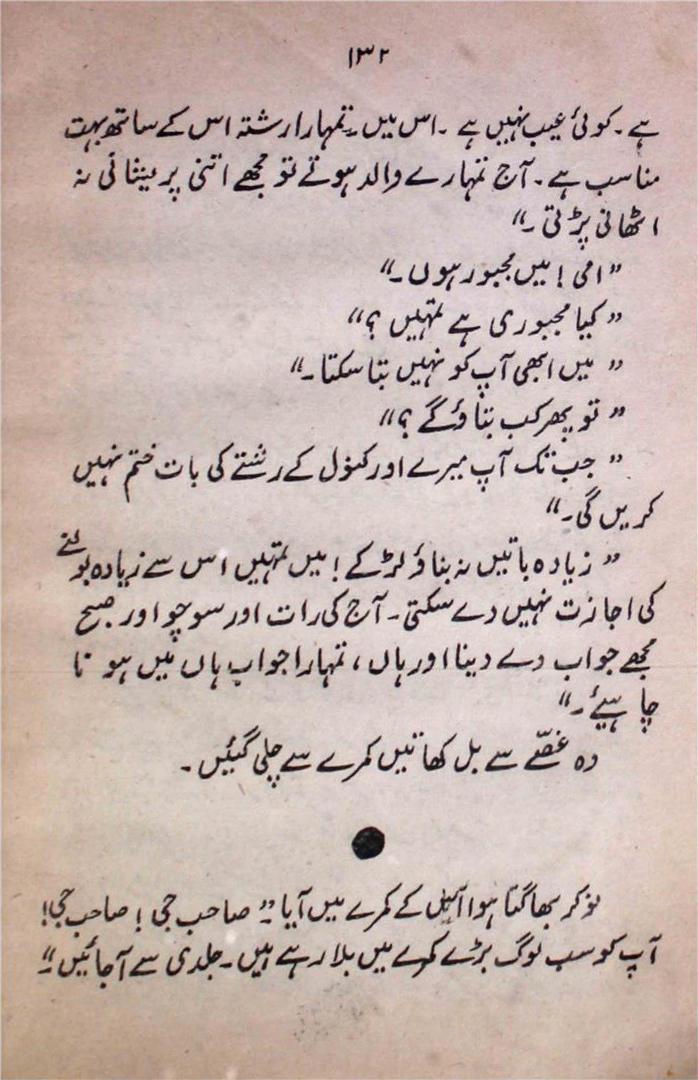 ۱۳۲
ہے۔ کوئی عیب نہیں ہے ۔ اس میں۔ تمہارا رشتہ اس کے ساتھ بہت
مناسب ہے۔ آج تمہارے والد ہوتے تو مجھے اتنی پریشانی نہ
اٹھانی پڑتی۔"
"امی! میں مجبور ہوں۔"
"کیا مجبوری ہے تمہیں؟"
"میں ابھی آپ کو نہیں بتا سکتا۔"
"تو پھر کب بتاؤ گے؟"
"جب تک آپ میرے اور کنول کے رشتے کی بات ختم نہیں
کریں گی۔"
"زیادہ باتیں نہ بناؤ لڑکے! میں تمہیں اس سے زیادہ بولنے
کی اجازت نہیں دے سکتی۔ آج کی رات اور سوچو اور صبح
مجھے جواب دے دینا اور ہاں، تمہارا جواب ہاں میں ہونا
چاہیئے۔"
وہ غصّے سے بل کھاتیں کمرے سے چلی گئیں۔
نوکر بھاگتا ہوا کے کمرے میں آیا۔ "صاحب جی! صاحب جی!
آپ کو سب لوگ بڑے کمرے میں بلا رہے ہیں۔ جلدی سے آ جائیں۔"